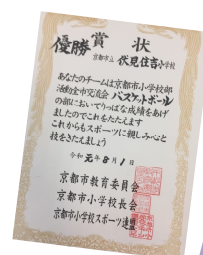 賞状
優勝
京都市立 伏見住吉小学校
あなたのチームは京都市小学校部
活動全市交流会 バスケットボール
の部においてりっぱな成績をあげ
ましたのでこれをたたえます
これからもスポーツに親しみ心と
技をきたえましょう
令和 元年 8月 1日
京都市教育委員会
京都市小学校長会
京都市小学校スポーツ連盟